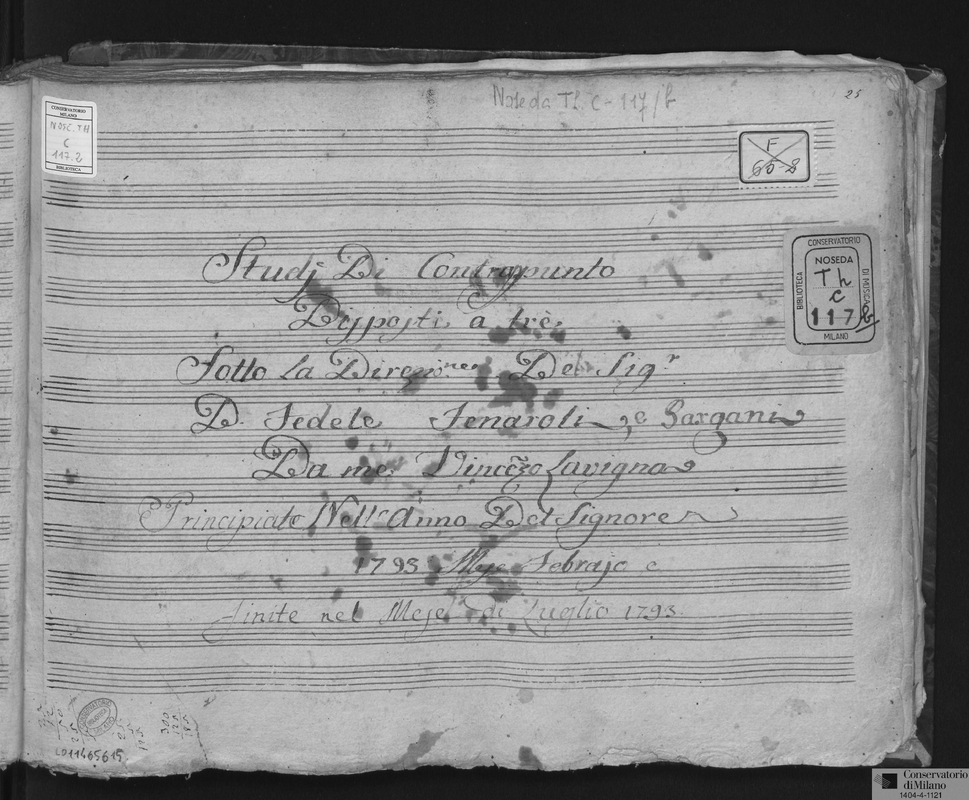 Noseda Th. C-117/b
25
CONSERVATORIO
MILANO
NOSE. TH
C
117.2
BIBLIOTECA
F
60-8
CONSERVATORIO
BIBLIOTECA
NOSEDA
Th
c
117 b
DI MUSICA
MILANO
Studj Di Contrappunto
Dissposti a trè
Sotto La Direzio:ne Del Sig.r
D. Fedele Fenaroli, e Bargani
Da me Vincẽzo Lavigna
Principiate Nell'Anno Del Signore
1793 Mese Febrajo e
finite nel Mese di Luglio 1793.
L011465615
Conservatorio
di Milano
1404-4-1121